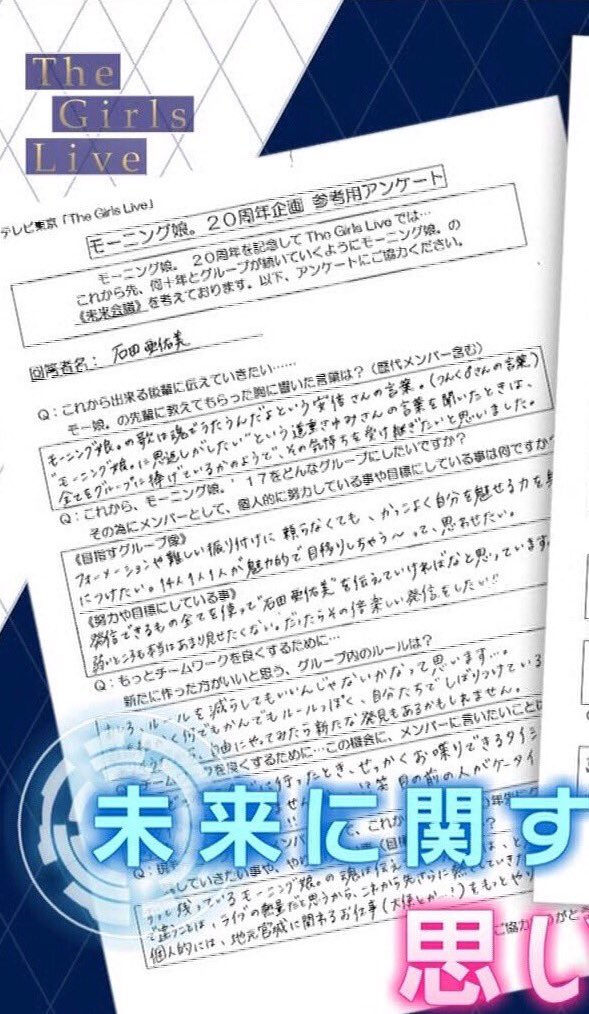 The
Girls
Live
テレビ東京「The Girls Live」
モーニング娘。20周年企画 参考用アンケート
モーニング娘。 20周年を記念してThe Girls Liveでは…
これから先、何十年とグループが続いていくようにモーニング娘。の
《未来会議》を考えております。以下、アンケートにご協力ください。
回答者名： 石田 亜佑美
Q：これから出来る後輩に伝えていきたい……
モー娘。の先輩に教えてもらった胸に響いた言葉は？（歴代メンバー含む）
モーニング娘。の歌は魂でうたうんだよという安倍さんの言葉。(つんく♂さんの言葉)
"モーニング娘。に恩返しがしたい"という道重さゆみさんの言葉を聞いたときは、
全てをグループに捧げているかのようで、その気持ちを受け継ぎたいと思いました。
Q：これから、モーニング娘。'17をどんなグループにしたいですか？
その為にメンバーとして、個人的に努力している事や目標にしている事は何ですか
《目指すグループ像》
フォーメーションや難しい振り付けに頼らなくても、かっこよく自分を魅せる力を身
につけたい。14人1人1人が魅力的で目移りしちゃう〜って、思わせたい。
《努力や目標にしている事》
発信できるもの全てを使って"石田亜佑美"を伝えていければなと思っています。
弱いところも本当はあまり見せたくない。だったらその倍楽しい発信をしたい!!
Q：もっとチームワークを良くするために…
新たに作った方がいいと思う、グループ内のルールは？
ルールを減らしてもいいんじゃないかなって思います…。
何でもかんでもルールっぽく、自分たちでしばりつけている
由にやってみたら新たな発見もあるかもしれません。
を良くするために…この機会に、メンバーに言いたいことは
に行ったとき、せっかくお喋りできるタイミ
せん 笑 目の前の人がケータイ
未来に関す
メンバー これか
していきたい事や、や
残っているモーニング娘。の魂は伝え
ことは、ライブの熱量だと思うから、これから先さらに熱くしていきた
個人的には、地元宮城に関わるお仕事(大使とか…!)をもっとやり
ご協力
思い